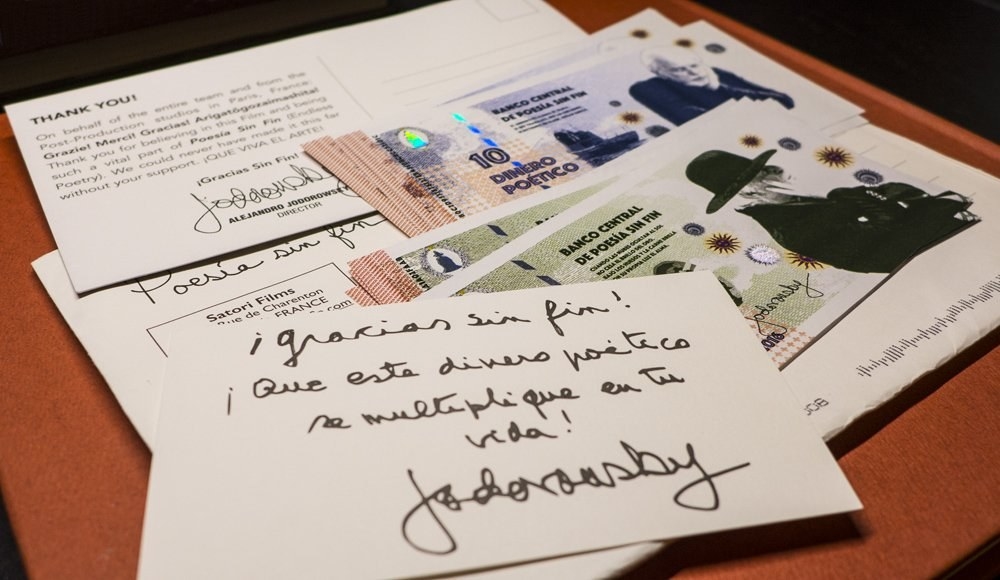 THANK YOU!
On behalf of the entire team and from the
Post-Production studios in Paris, France:
Grazie! Merci! Gracias! Arigatógozaimashita!
Thank you for believing in this Film, and being
such a vital part of Poesía Sin Fin (Endless
Poetry). We could never have made it this far
without your support. ¡QUE VIVA EL ARTE!
¡Gracias Sin Fin!
Jodorowsky
ALEJANDRO JODOROWSKY
DIRECTOR
Poesía sin fin
Satori Films
Rue de Charenton
FRANCE
.com
BANCO CENTRAL
DE POESÍA SIN FIN
10
DINERO
POÉTICO
BANCO CENTRAL
DE POESÍA SIN FIN
CUANDO LAS NUBES OCULTAN AL SOL
Jodorowsky
2015
¡gracias sin fin!
¡Que este dinero poético
se multiplique en tu
vida!
Jodorowsky